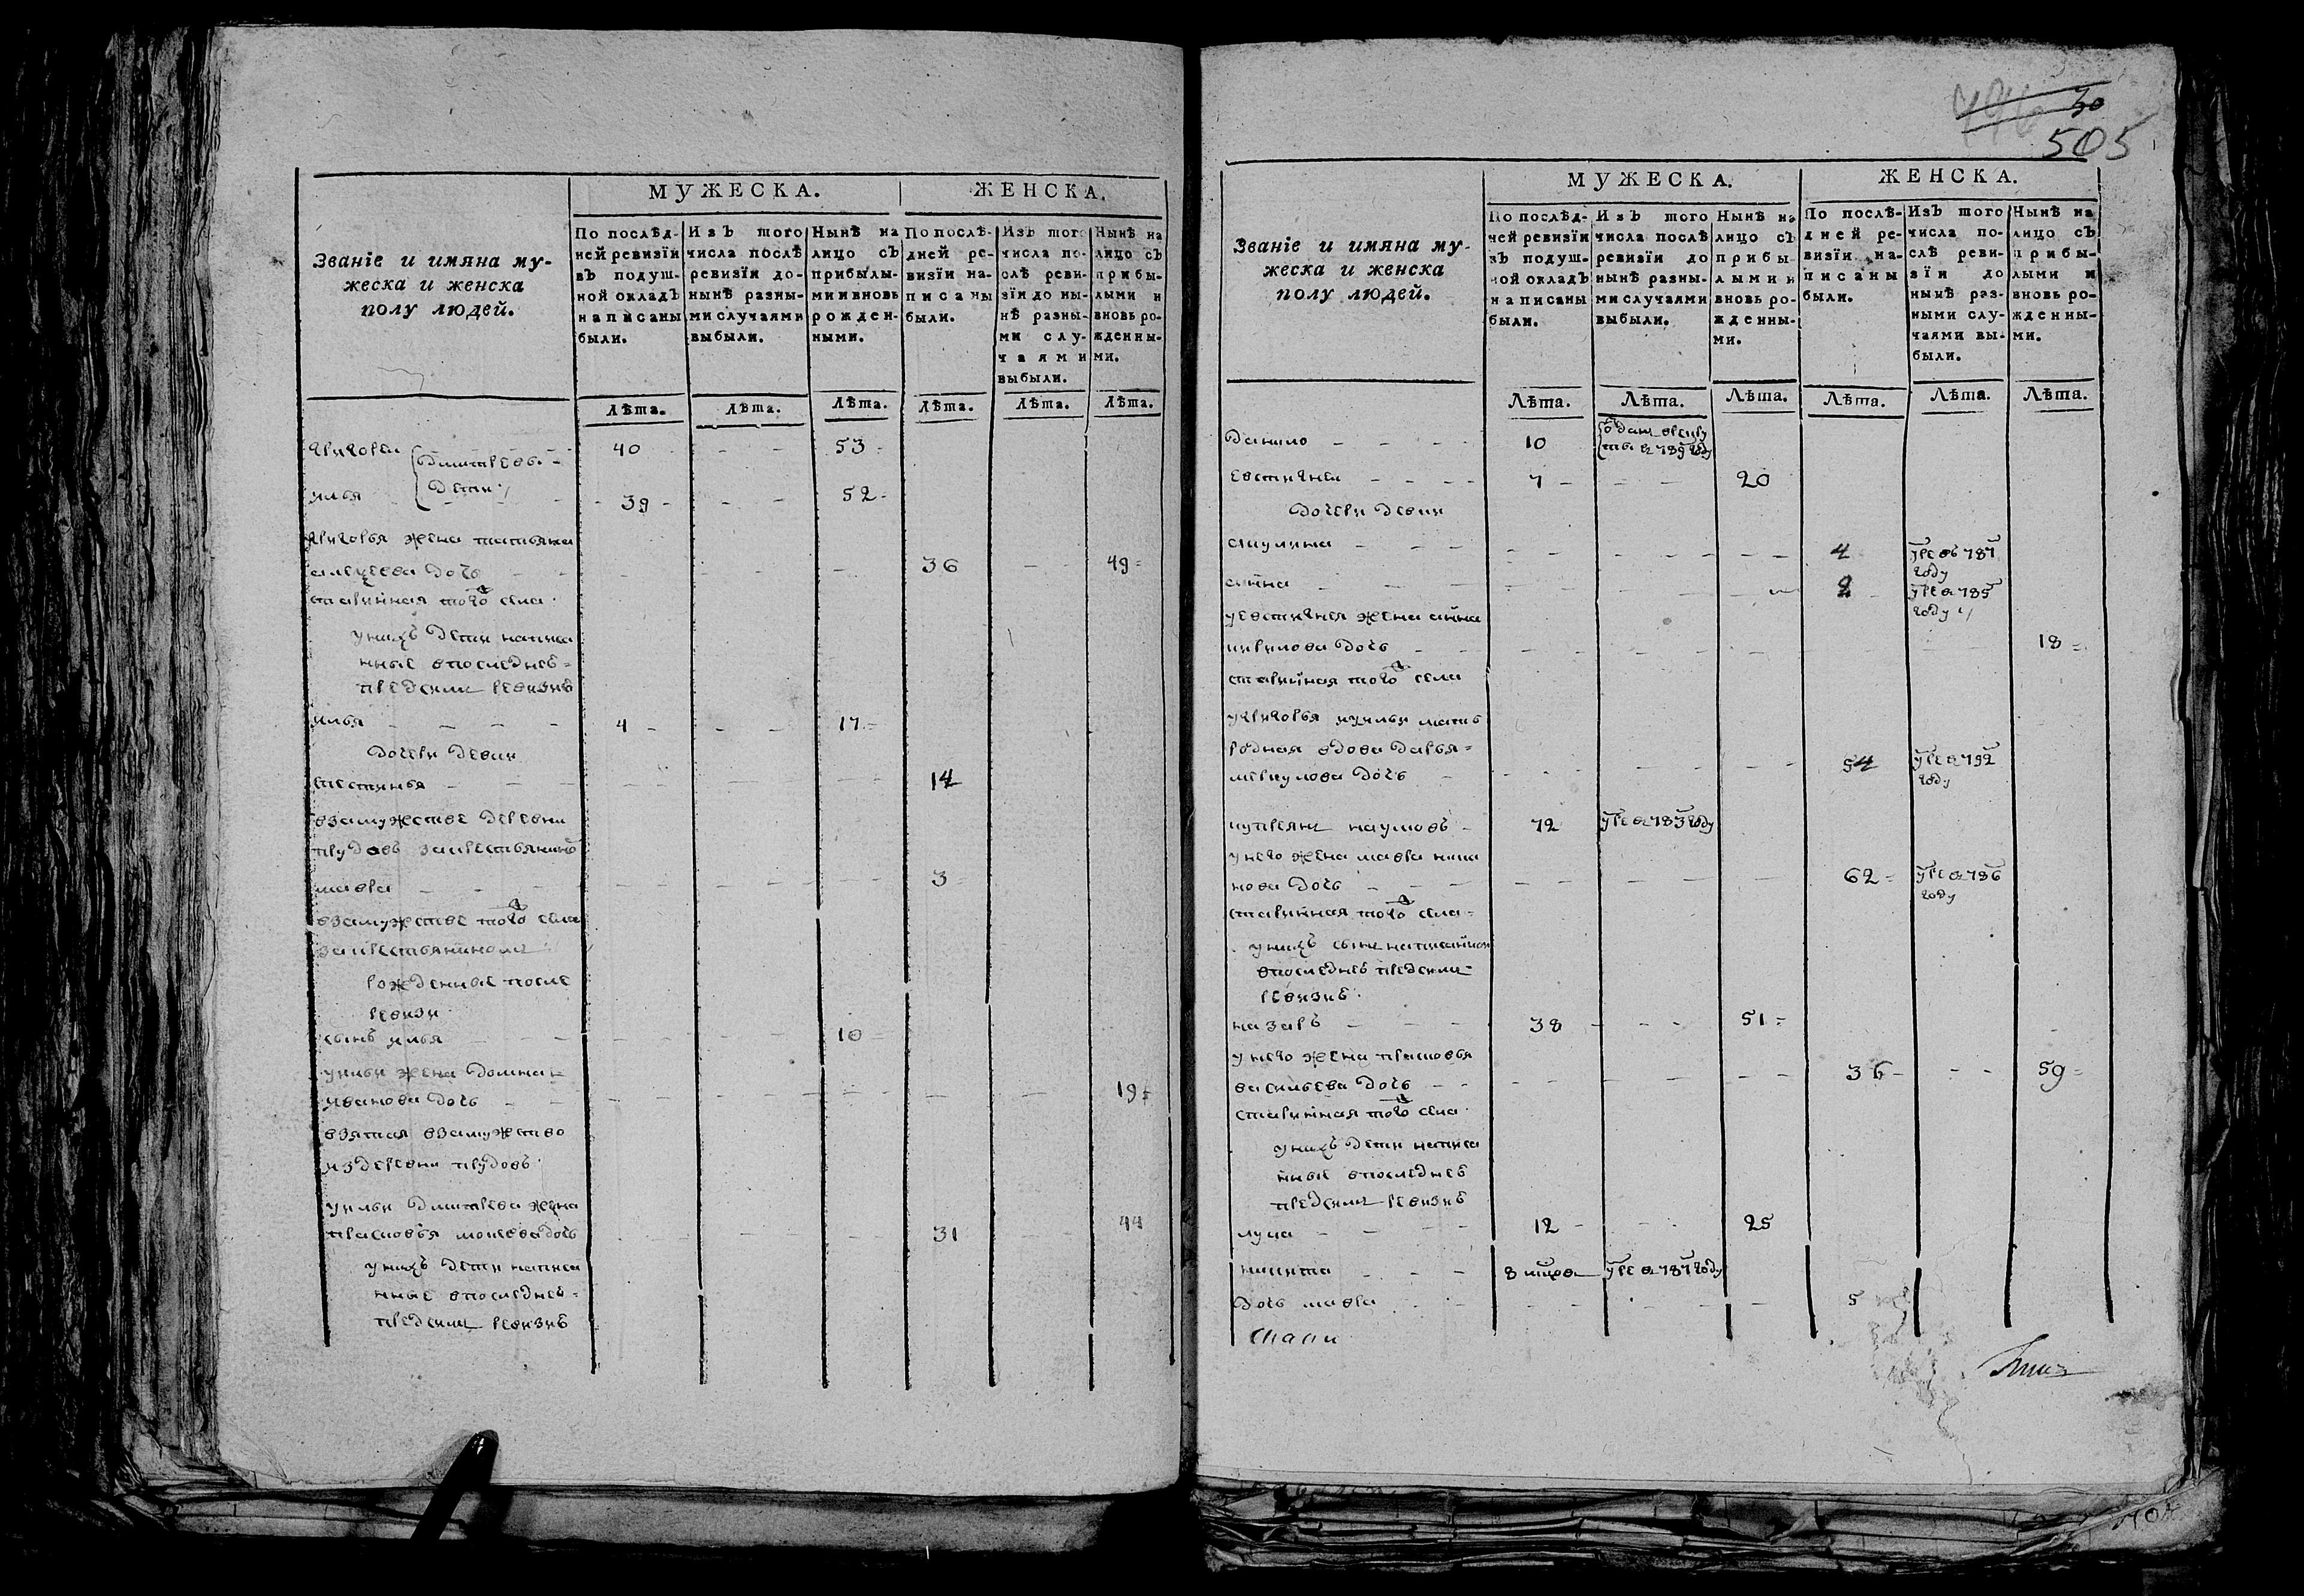 Званїе и имяна му-
жеска и женска
полу людей.
МУЖЕСКА.
ЖЕНСКА.
По послѣд-
ней ревизїи
въ подуш-
ной окладъ
написаны
были.
Изъ того
числа послѣ
ревизїи до-
нынѣ разны-
ми случаями
выбыли.
Нынѣ на
лицо съ
прибылы-
ми и вновь
рожден-
ными.
По послѣ-
дней ре-
визїи на-
писаны
были.
Изъ того
числа по-
слѣ реви-
зїи до ны-
нѣ разны-
ми слу-
чаями
выбыли.
Нынѣ на
лицо съ
прибы-
лыми и
вновь ро-
жденны-
ми.
Лѣта. Лѣта. Лѣта. Лѣта. Лѣта. Лѣта.
григореи дмитревы 40 53
илья дети 39 52
григорья жена татьяна
дочь 36 49
старинная того села
у нихъ дети написа
нные в последней
пред сим ревизиѣ
илья 4 17
дочери девки
устинья 14
в замужстве деревни
прудовъ за крестьянинѣ
мавра 3
в замужстве того села
за крестьянином
рожденные после
ревизи
сынъ илья 10
у ильи жена домна
иванова дочь 19
взятая в замужство
из деревни прудовъ
у ильи дмитрева жена
прасковья моисева дочь 31 44
у нихъ дети написа
нные в последней
пред сим ревизиѣ
30
505
Званїе и имяна му-
жеска и женска
полу людей.
МУЖЕСКА.
ЖЕНСКА.
По послѣд-
ней ревизїи
въ подуш-
ной окладъ
написаны
были.
Изъ того
числа послѣ
ревизїи до
нынѣ разны-
ми случаями
выбыли.
Нынѣ на
лицо съ
прибы-
лыми и
вновь ро-
жденны-
ми.
По послѣ-
дней ре-
визїи на-
писаны
были.
Изъ того
числа по-
слѣ реви-
зїи до
нынѣ раз-
ными слу-
чаями вы-
были.
Нынѣ на
лицо съ
прибы-
лыми и
вновь ро-
жденны-
ми.
Лѣта. Лѣта. Лѣта. Лѣта. Лѣта. Лѣта.
данило 10 отдан в рекру
ты в 789 году
евстигнеи 7 20
дочери девки
акулина 4 умре въ 787
году
анна 2 умре в 785
году
у евстигнея жена анна
кирилова дочь 18
старинная того села
у григорья и у ильи мать
родная вдова дарья
меркулова дочь 54 умре в 792
году
куприян наумовъ 72 умре в 783 году
у него жена мавра
нова дочь 62 умре в 786
году
старинная того села
у нихъ сын написанной
в последней пред сим
ревизиѣ
назаръ 38 51
у него жена прасковья
васильева дочь 36 59
старинная того села
у нихъ дети написа
нные в последней
пред сим ревизиѣ
лука 12 25
никита 8 умре в 787 году
дочь мавра 5